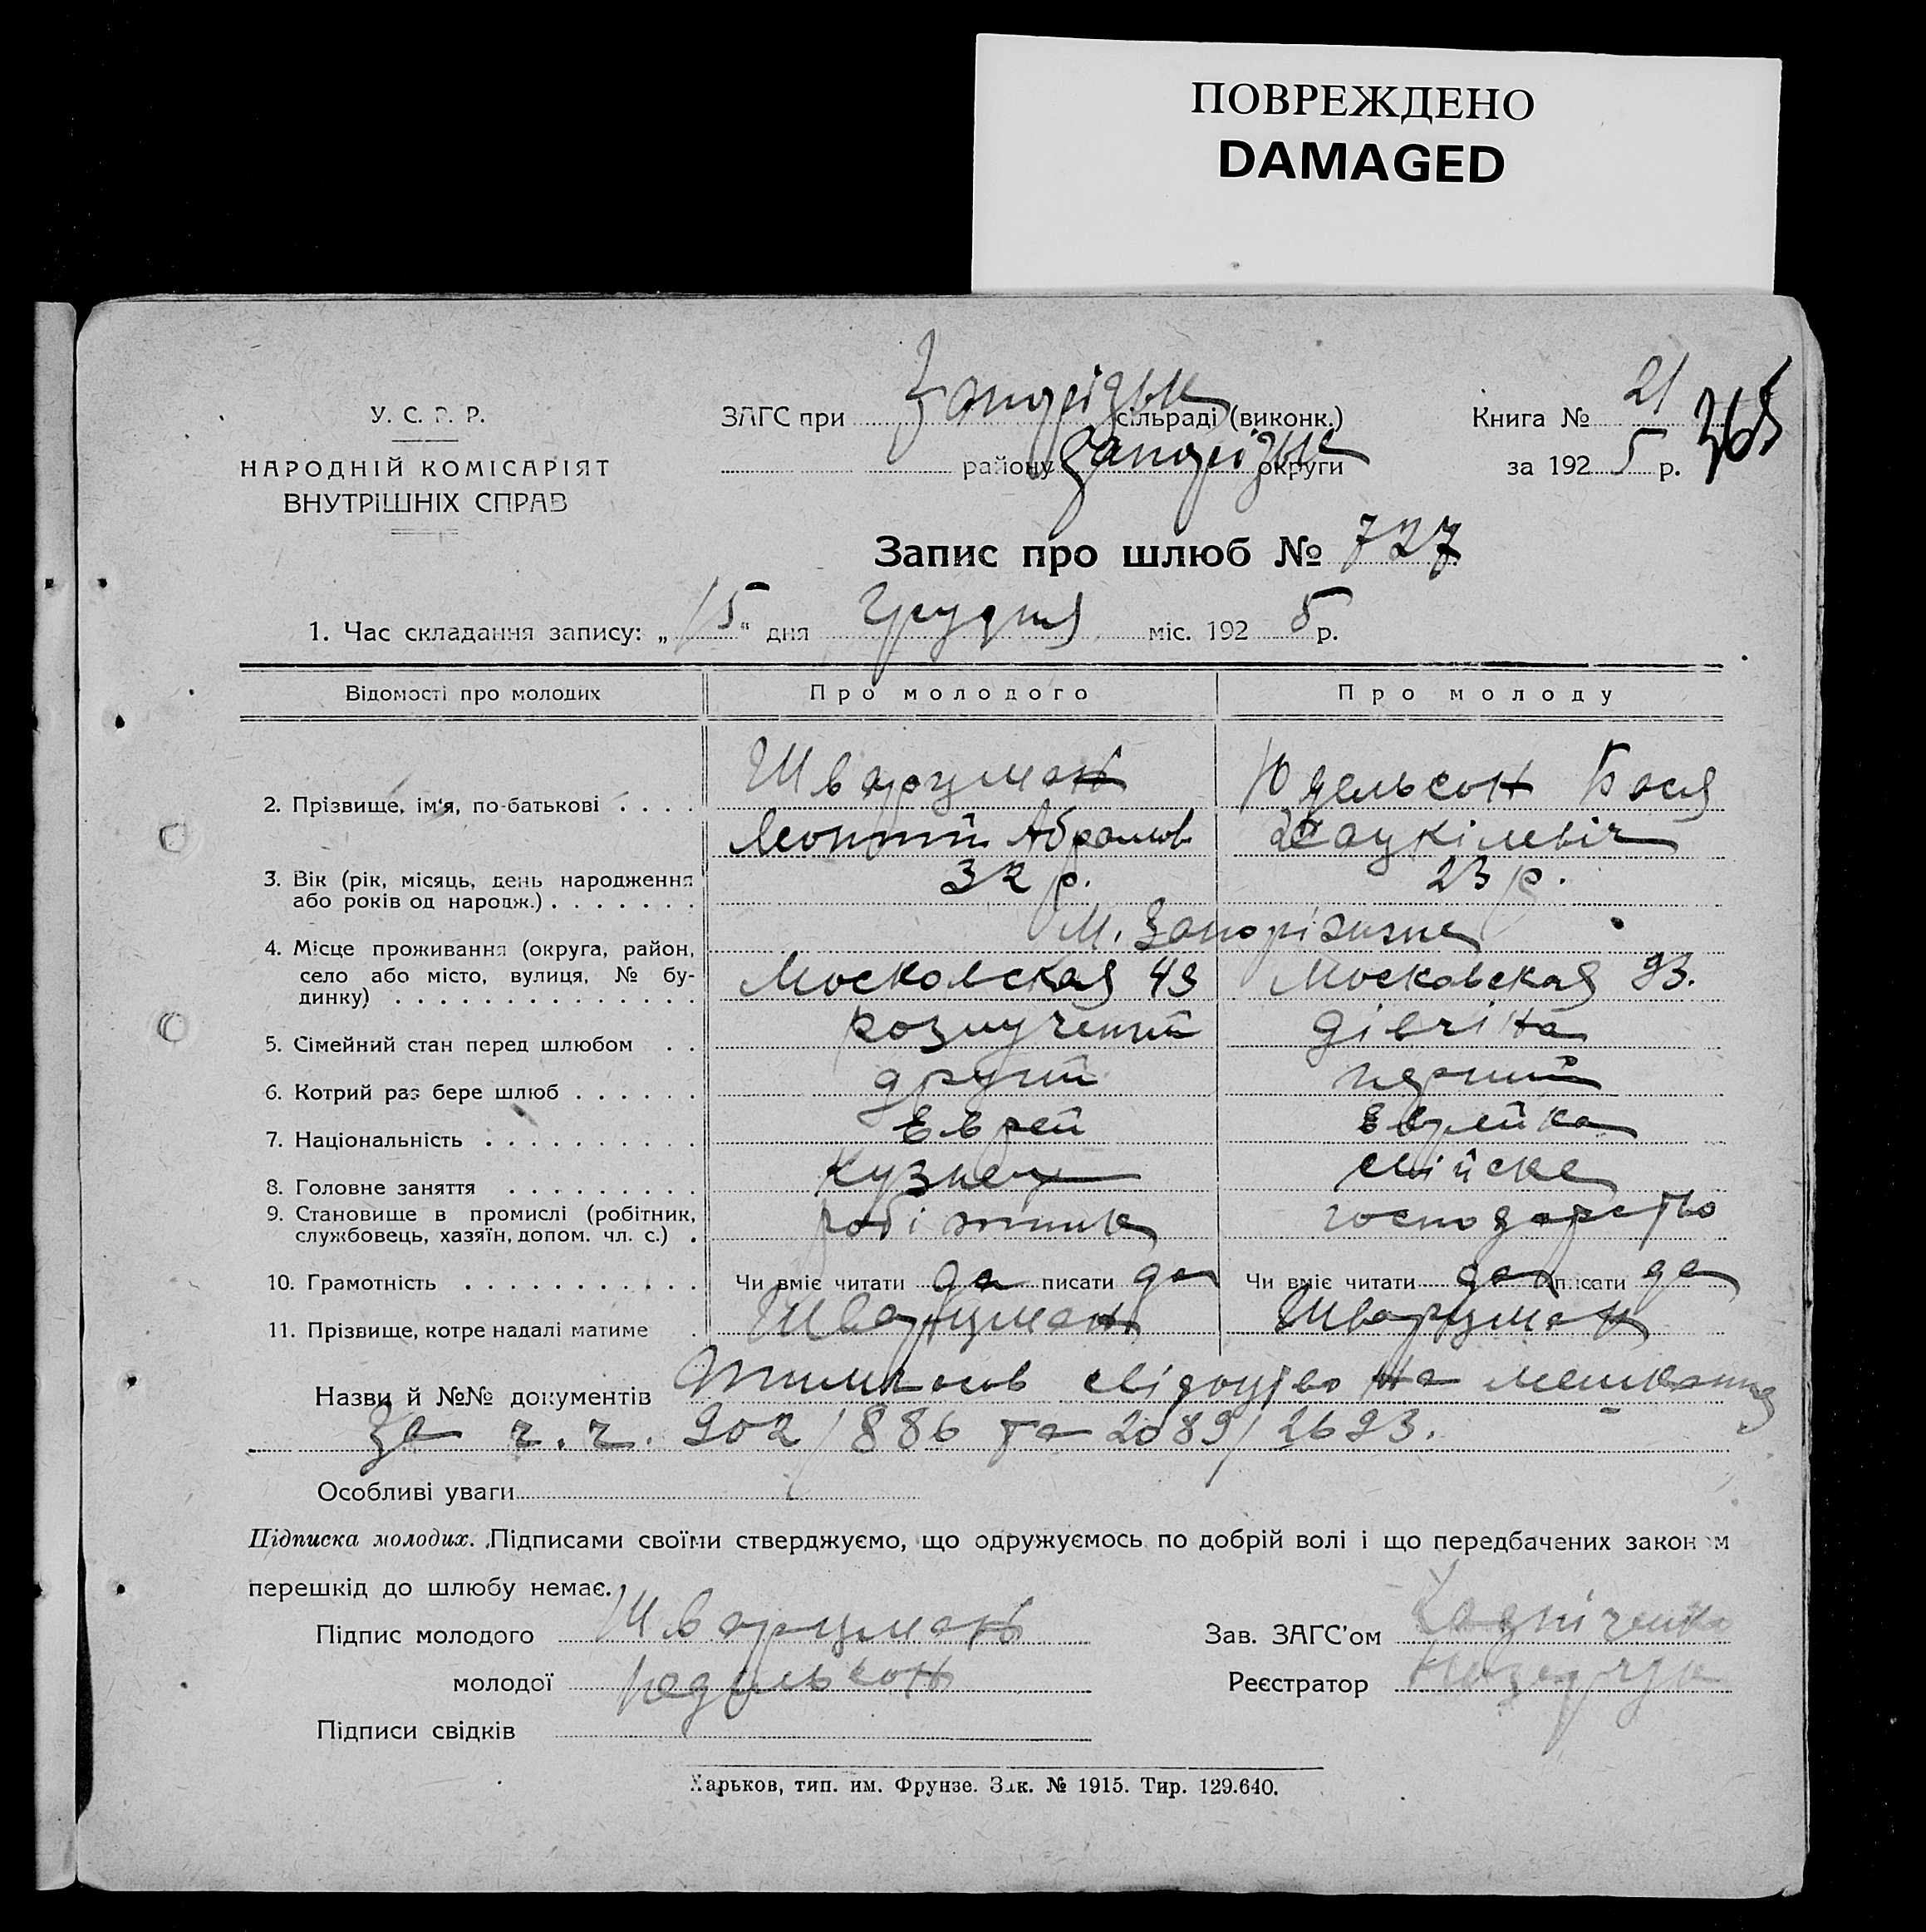 ПОВРЕЖДЕНО
DAMAGED
У. С. Р. Р.
НАРОДНІЙ КОМІСАРІЯТ
ВНУТРІШНІХ СПРАВ
ЗАГС при Запорізьк сільраді (виконк.)
району Запорізьк округи
Книга № 21
365
за 1925 р.
Запис про шлюб № 727
1. Час складання запису: „15“ дня Грудня міс. 1925 р.
Відомості про молодих Про молодого Про молоду
2. Прізвище, ім'я, по-батькові . . . . Шварцман Юдельсон Бася
Леонтий Абрамов
3. Вік (рік, місяць, день народження
або років од народж.) . . . . . . . 32 р. 23 р.
4. Місце проживання (округа, район,
село або місто, вулиця, № бу-
динку) . . . . . . . . . . . . . .
М. Запоріжже
Московская 43 Московская 93.
5. Сімейний стан перед шлюбом . . розлучений дівчіна
6. Котрий раз бере шлюб . . . . . . другий перший
7. Національність . . . . . . . . . . Еврей Еврейка
8. Головне заняття . . . . . . . . . Кузнец
9. Становище в промислі (робітник,
службовець, хазяїн, допом. чл. с.) . робітник господарство
10. Грамотність . . . . . . . . . . . Чи вміє читати да писати да Чи вміє читати да писати да
11. Прізвище, котре надалі матиме . Шварцман Шварцман
Назви й №№ документів свідоцтво на мешкання
за ч. ч. 902/886 та 2089/2693.
Особливі уваги
Підписка молодих. Підписами своїми стверджуємо, що одружуємось по добрій волі і що передбачених законом
перешкід до шлюбу немає.
Підпис молодого Шварцман Зав. ЗАГС'ом
молодої Юдельсон Реєстратор
Підписи свідків
Харьков, тип. им. Фрунзе. Зак. № 1915. Тир. 129.640.